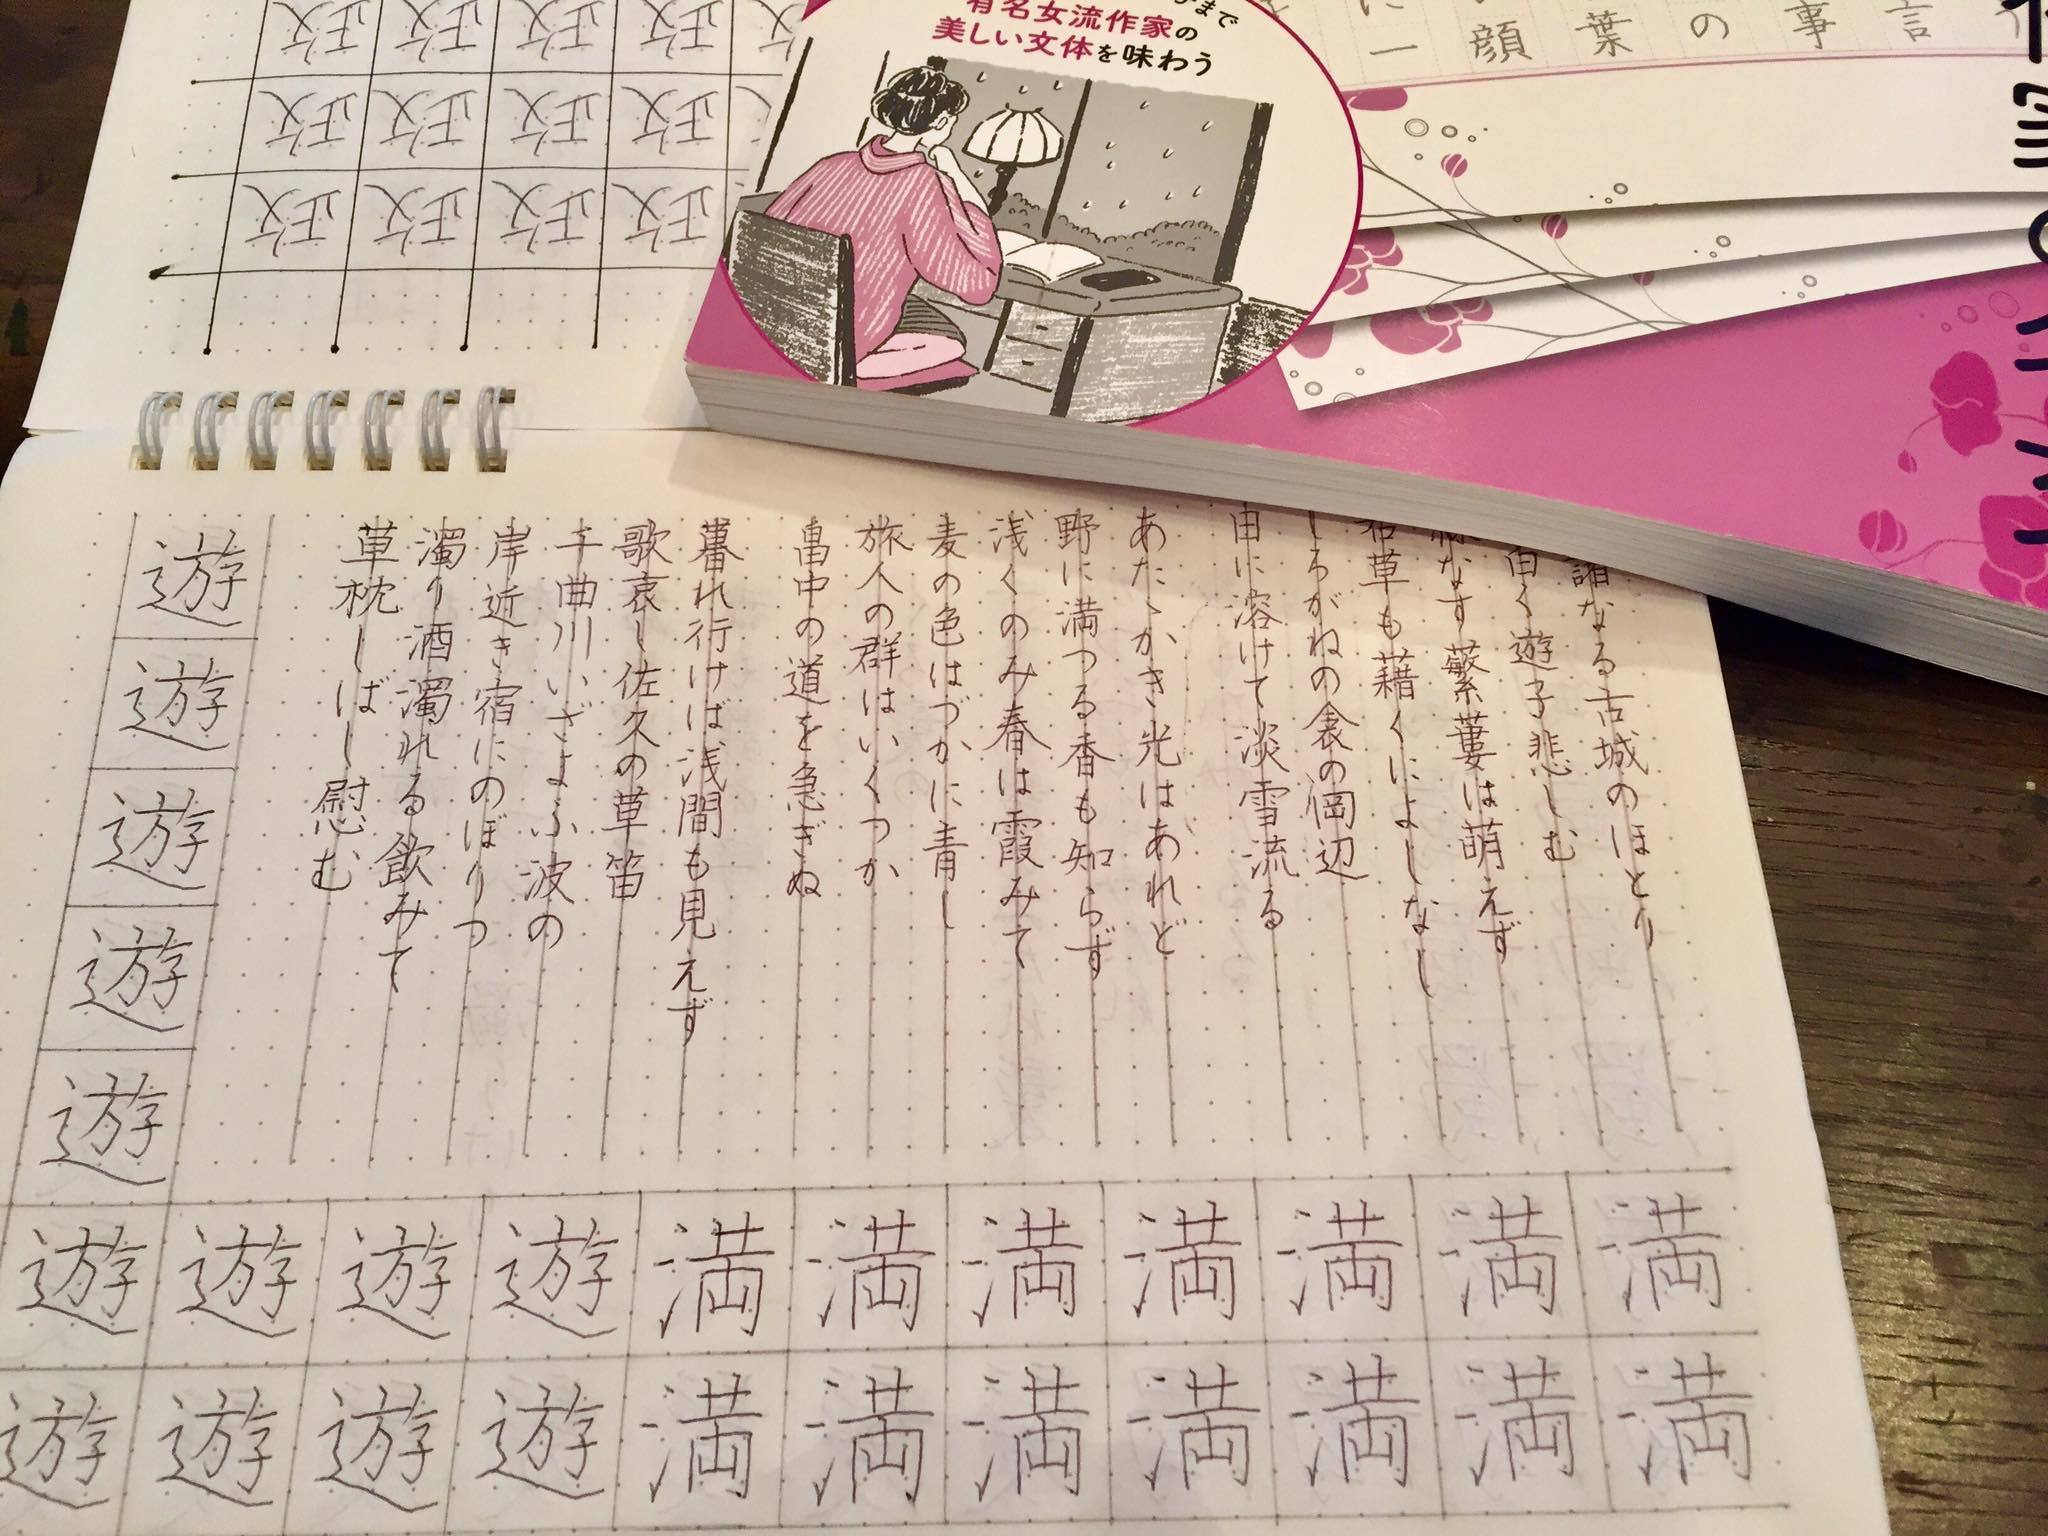 有名女流作家の
美しい文体を味わう
言
事
の
葉
顔
に一
政政政政
政政政政
政政政政
諸なる古城のほとり
白く遊子悲しむ
なす繁蔞は萌えず
若草も藉くによしなし
しろがねの衾の岡辺
日に溶けて淡雪流る
あたゝかき光はあれど
野に満つる香も知らず
浅くのみ春は霞みて
麦の色はづかに青し
旅人の群はいくつか
畠中の道を急ぎぬ
暮れ行けば浅間も見えず
歌哀し佐久の草笛
千曲川いざよふ波の
岸近き宿にのぼりつ
濁り酒濁れる飲みて
草枕しばし慰む
遊
遊
遊
遊
遊
遊遊遊遊満満満満満満満
遊遊遊遊満満満満満満満